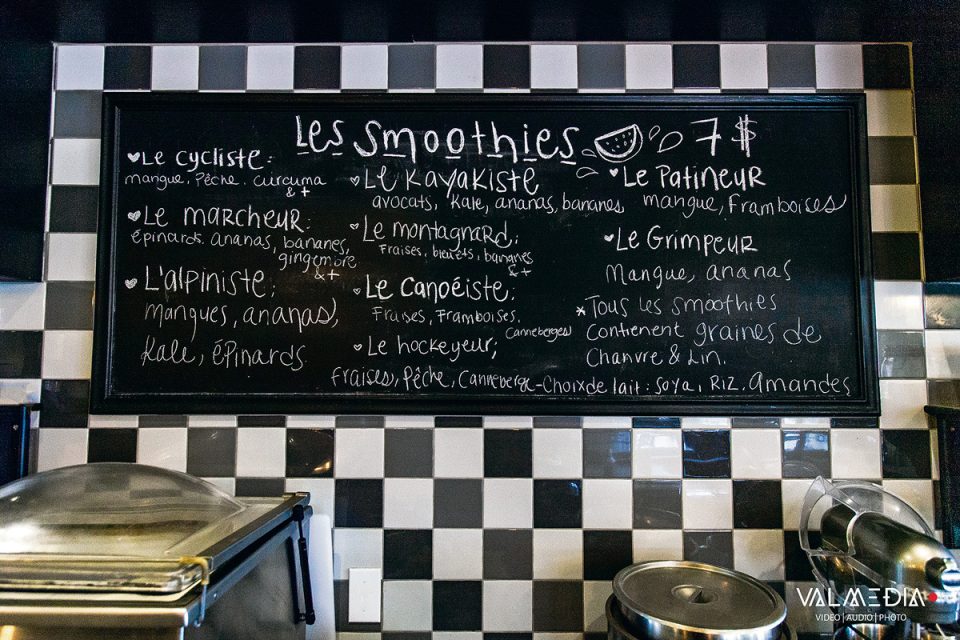 Les Smoothies 7 $
Le cycliste:
mangue, Pêche. Curcuma
&+
Le marcheur:
épinards. ananas, bananes,
gingembre
&+
L'alpiniste;
mangues, ananas,
Kale, épinards
Le Kayakiste
avocats, Kale, ananas, bananes,
Le montagnard;
Fraises, bleuets, bananes
&+
Le Canoéiste;
Fraises, Framboises.
Canneberges
Le hockeyeur;
Fraises, Pêche, Canneberge-Choix de lait: Soya, Riz, Amandes
Le Patineur
mangue, Framboises
Le Grimpeur
Mangue, ananas
*Tous les smoothies
Contienent graines de
Chanvre & Lin.
VALMEDIA
VIDEO | AUDIO | PHOTO